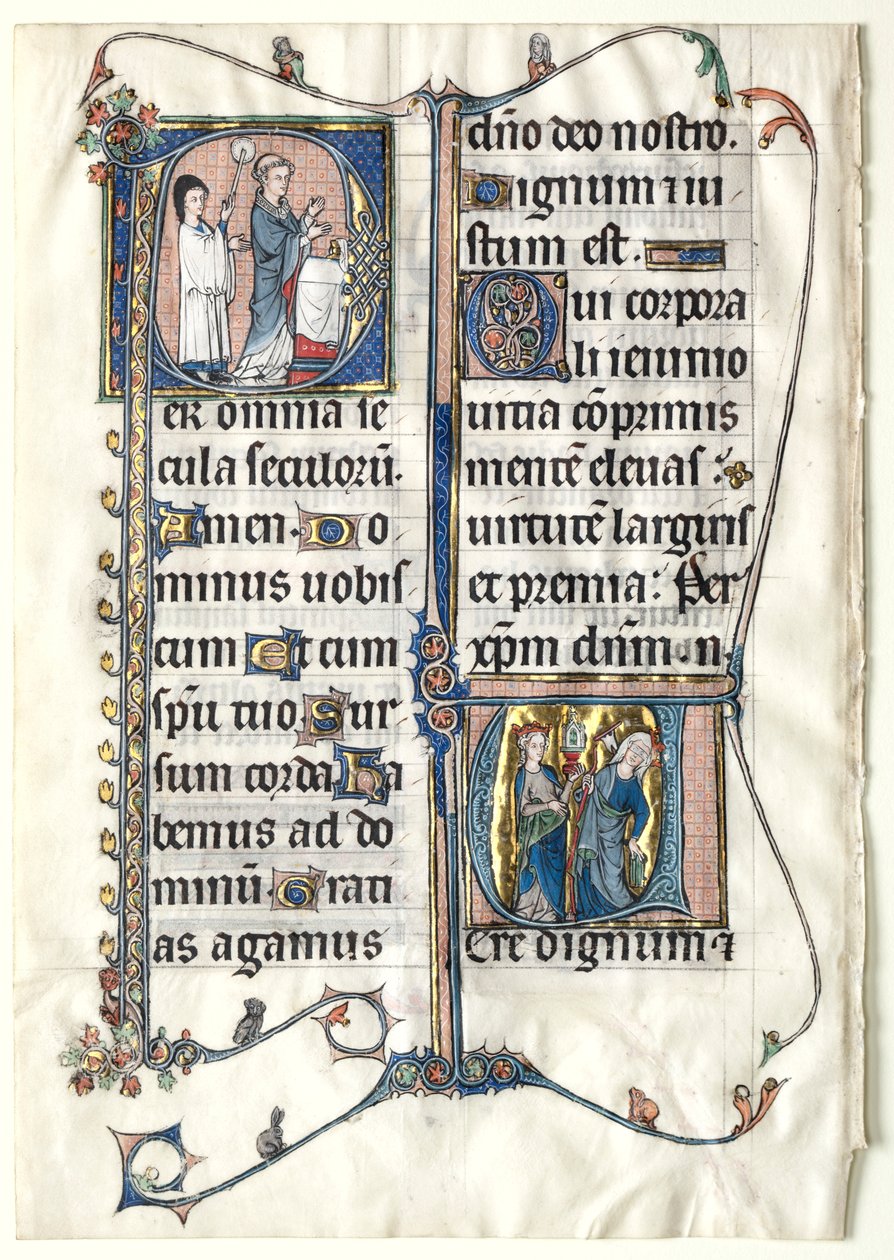 Per omnia se
cula seculorū.
Amen. Do
minus uobis
cum Et cum
sp̄u tuo. Sur
sum corda Ha
bemus ad do
minū. Grati
as agamus
dn̄o deo nostro.
Dignum ⁊ iu
stum est.
Qui corpora
li ieiunio
uitia cōprimis
mentē eleuas:
uirtutē largiris
et premia: Per
xp̄m dn̄m. n.
Uere dignum ⁊